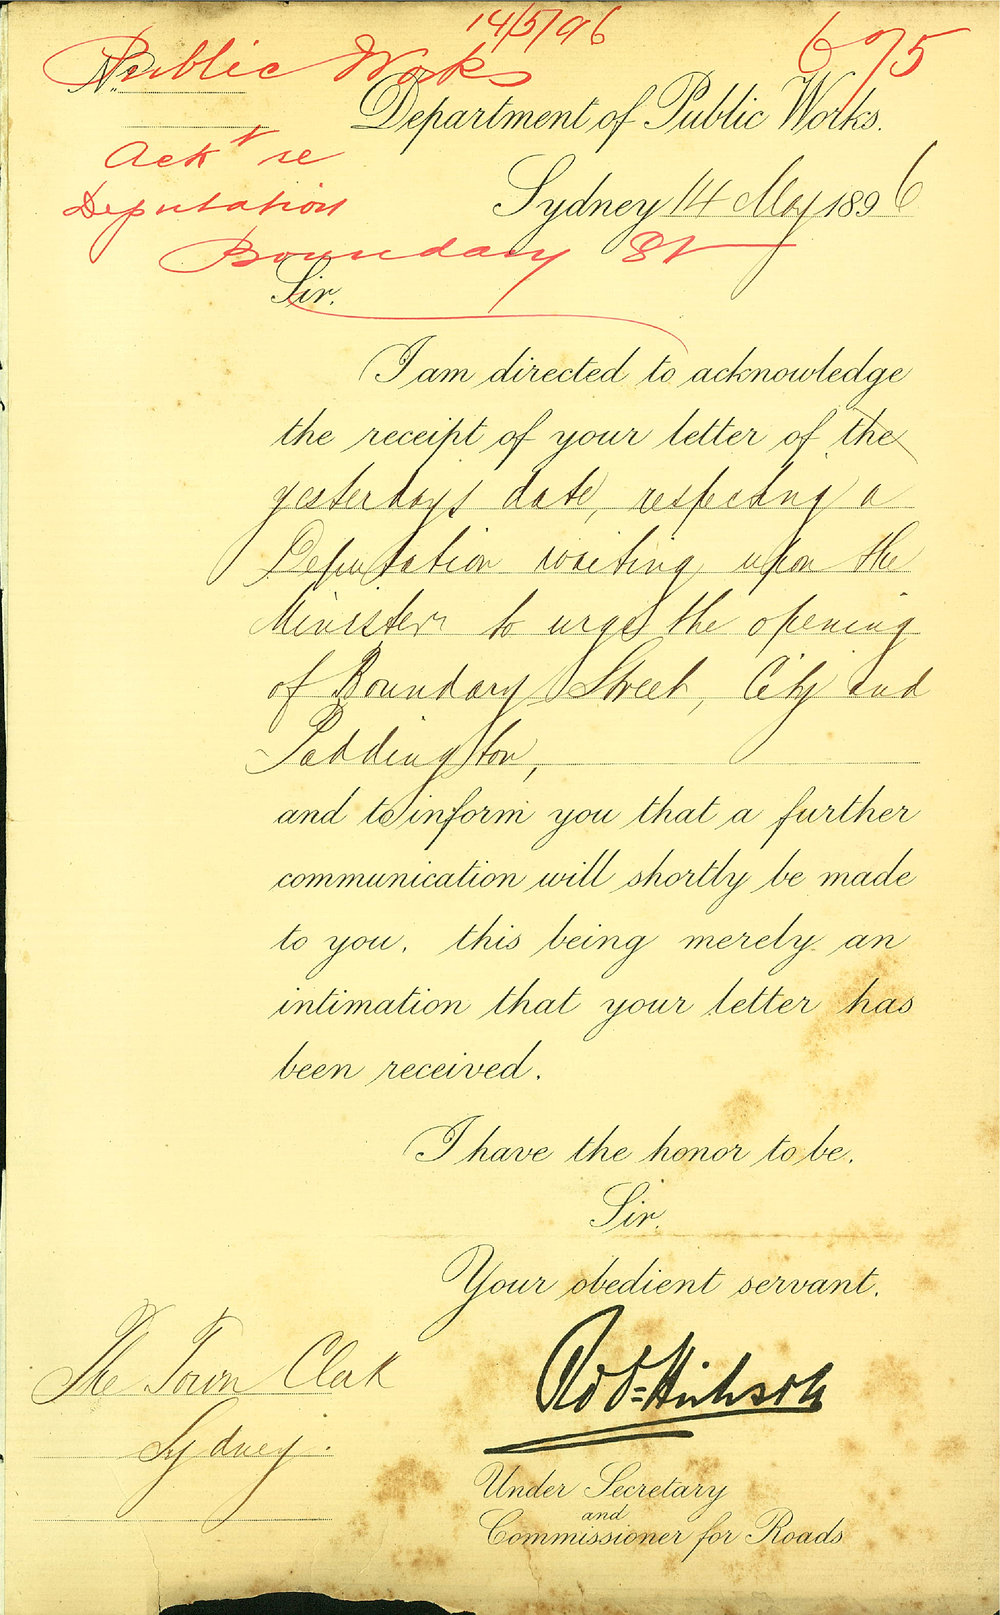 14/5/96
Public Works
675
No.
Department of Public Works.
Ackt re
Deputation
Sydney 14 May 1896
Boundary St
Sir.
I am directed to acknowledge
the receipt of your letter of the
yesterday's date, respecting a
Deputation waiting upon the
Minister to urge the opening
of Boundary Street, City and
Paddington,
and to inform you that a further
communication will shortly be made
to you, this being merely an
intimation that your letter has
been received.
I have the honor to be.
Sir.
Your obedient servant.
The Town Clerk
Sydney.
Robt Hickson
Under Secretary
and
Commissioner for Roads